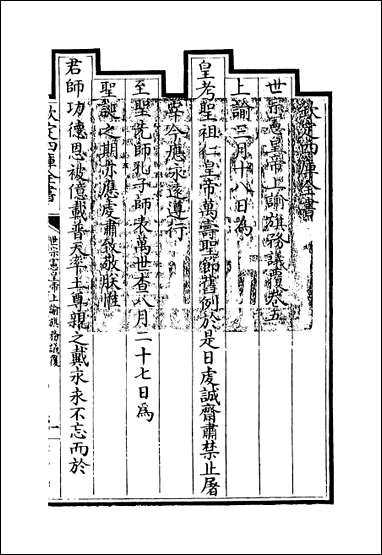 欽定四庫全書
世宗憲皇帝上諭旗務議覆卷五
上諭三月十八日為
皇考聖祖仁皇帝萬壽聖節舊例於是日虔誠齋肅禁止屠
宰今應永遠遵行
至聖先師孔子師表萬世查八月二十七日為
聖誕之期亦應虔肅致敬朕惟
君師功德恩被億載普天率土尊親之戴永永不忘而於
欽定四庫全書
世宗憲皇帝上諭旗務議覆